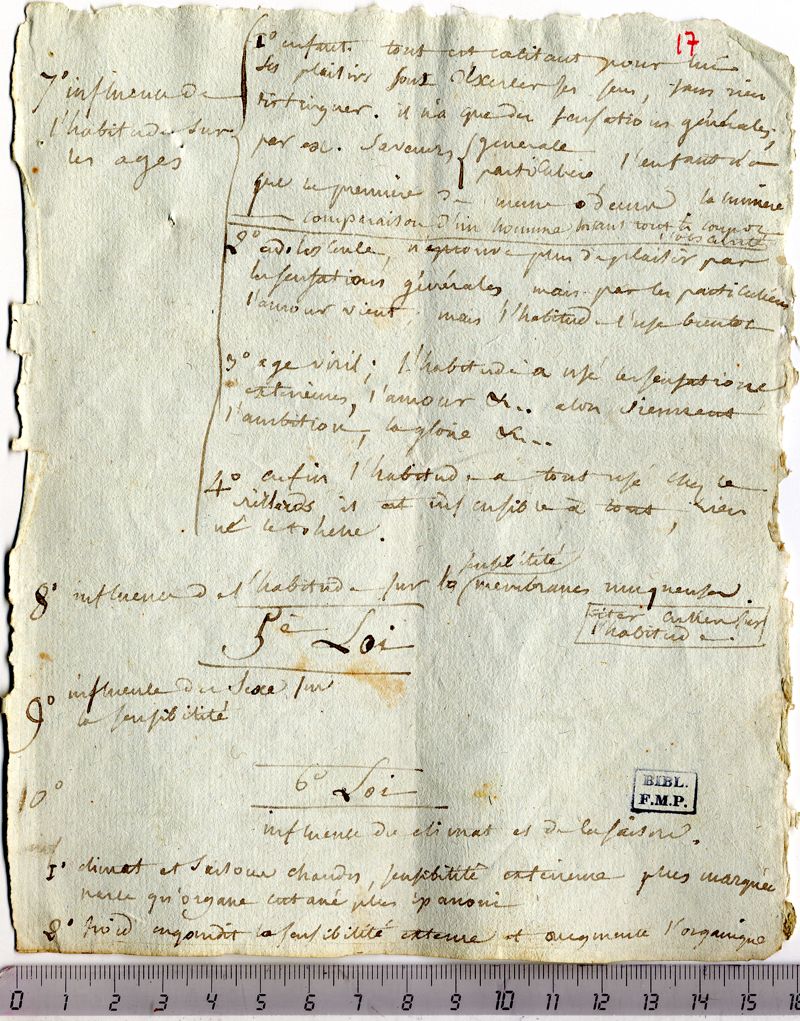 17
7° influence de
l'habitude sur
les ages
1° enfant. tout est excitant pour lui
ses plaisirs sont d'exercer ses sens, sans rien
distinguer. il n'a que des sensations générales,
par ex. saveurs { generale
particuliere l'enfant n'a
que la premiere de meme odeur la lumiere
comparaison d'un homme
2° adolescence, n'eprouve plus de plaisir par
les sensations générales mais par les particulieres
l'amour vient; mais l'habitude l'use bientot
3° age viril; l'habitude a usé les sensations
exterieures, l'amour &... alors viennent
l'ambition, la gloire &...
4° enfin l'habitude a tout usé chez le
vieillard il est insensible à tout, rien
ne le touche.
8° influence de l'habitude sur la sensibilité membranes muqueuses.
citer Cullen sur
l'habitude.
5e Loi
9° influence du sexe sur
la sensibilité
10°
6° Loi
BIBL.
F.M.P.
influence du climat et de la saison.
1° climat et saison chaudes, sensibilité exterieure plus marquée
parce qu'organe cutané plus épanoui
2° froid engourdit la sensibilité externe et augmente l'organique
0 1 2 3 4 5 6 7 8 9 10 11 12 13 14 15 16